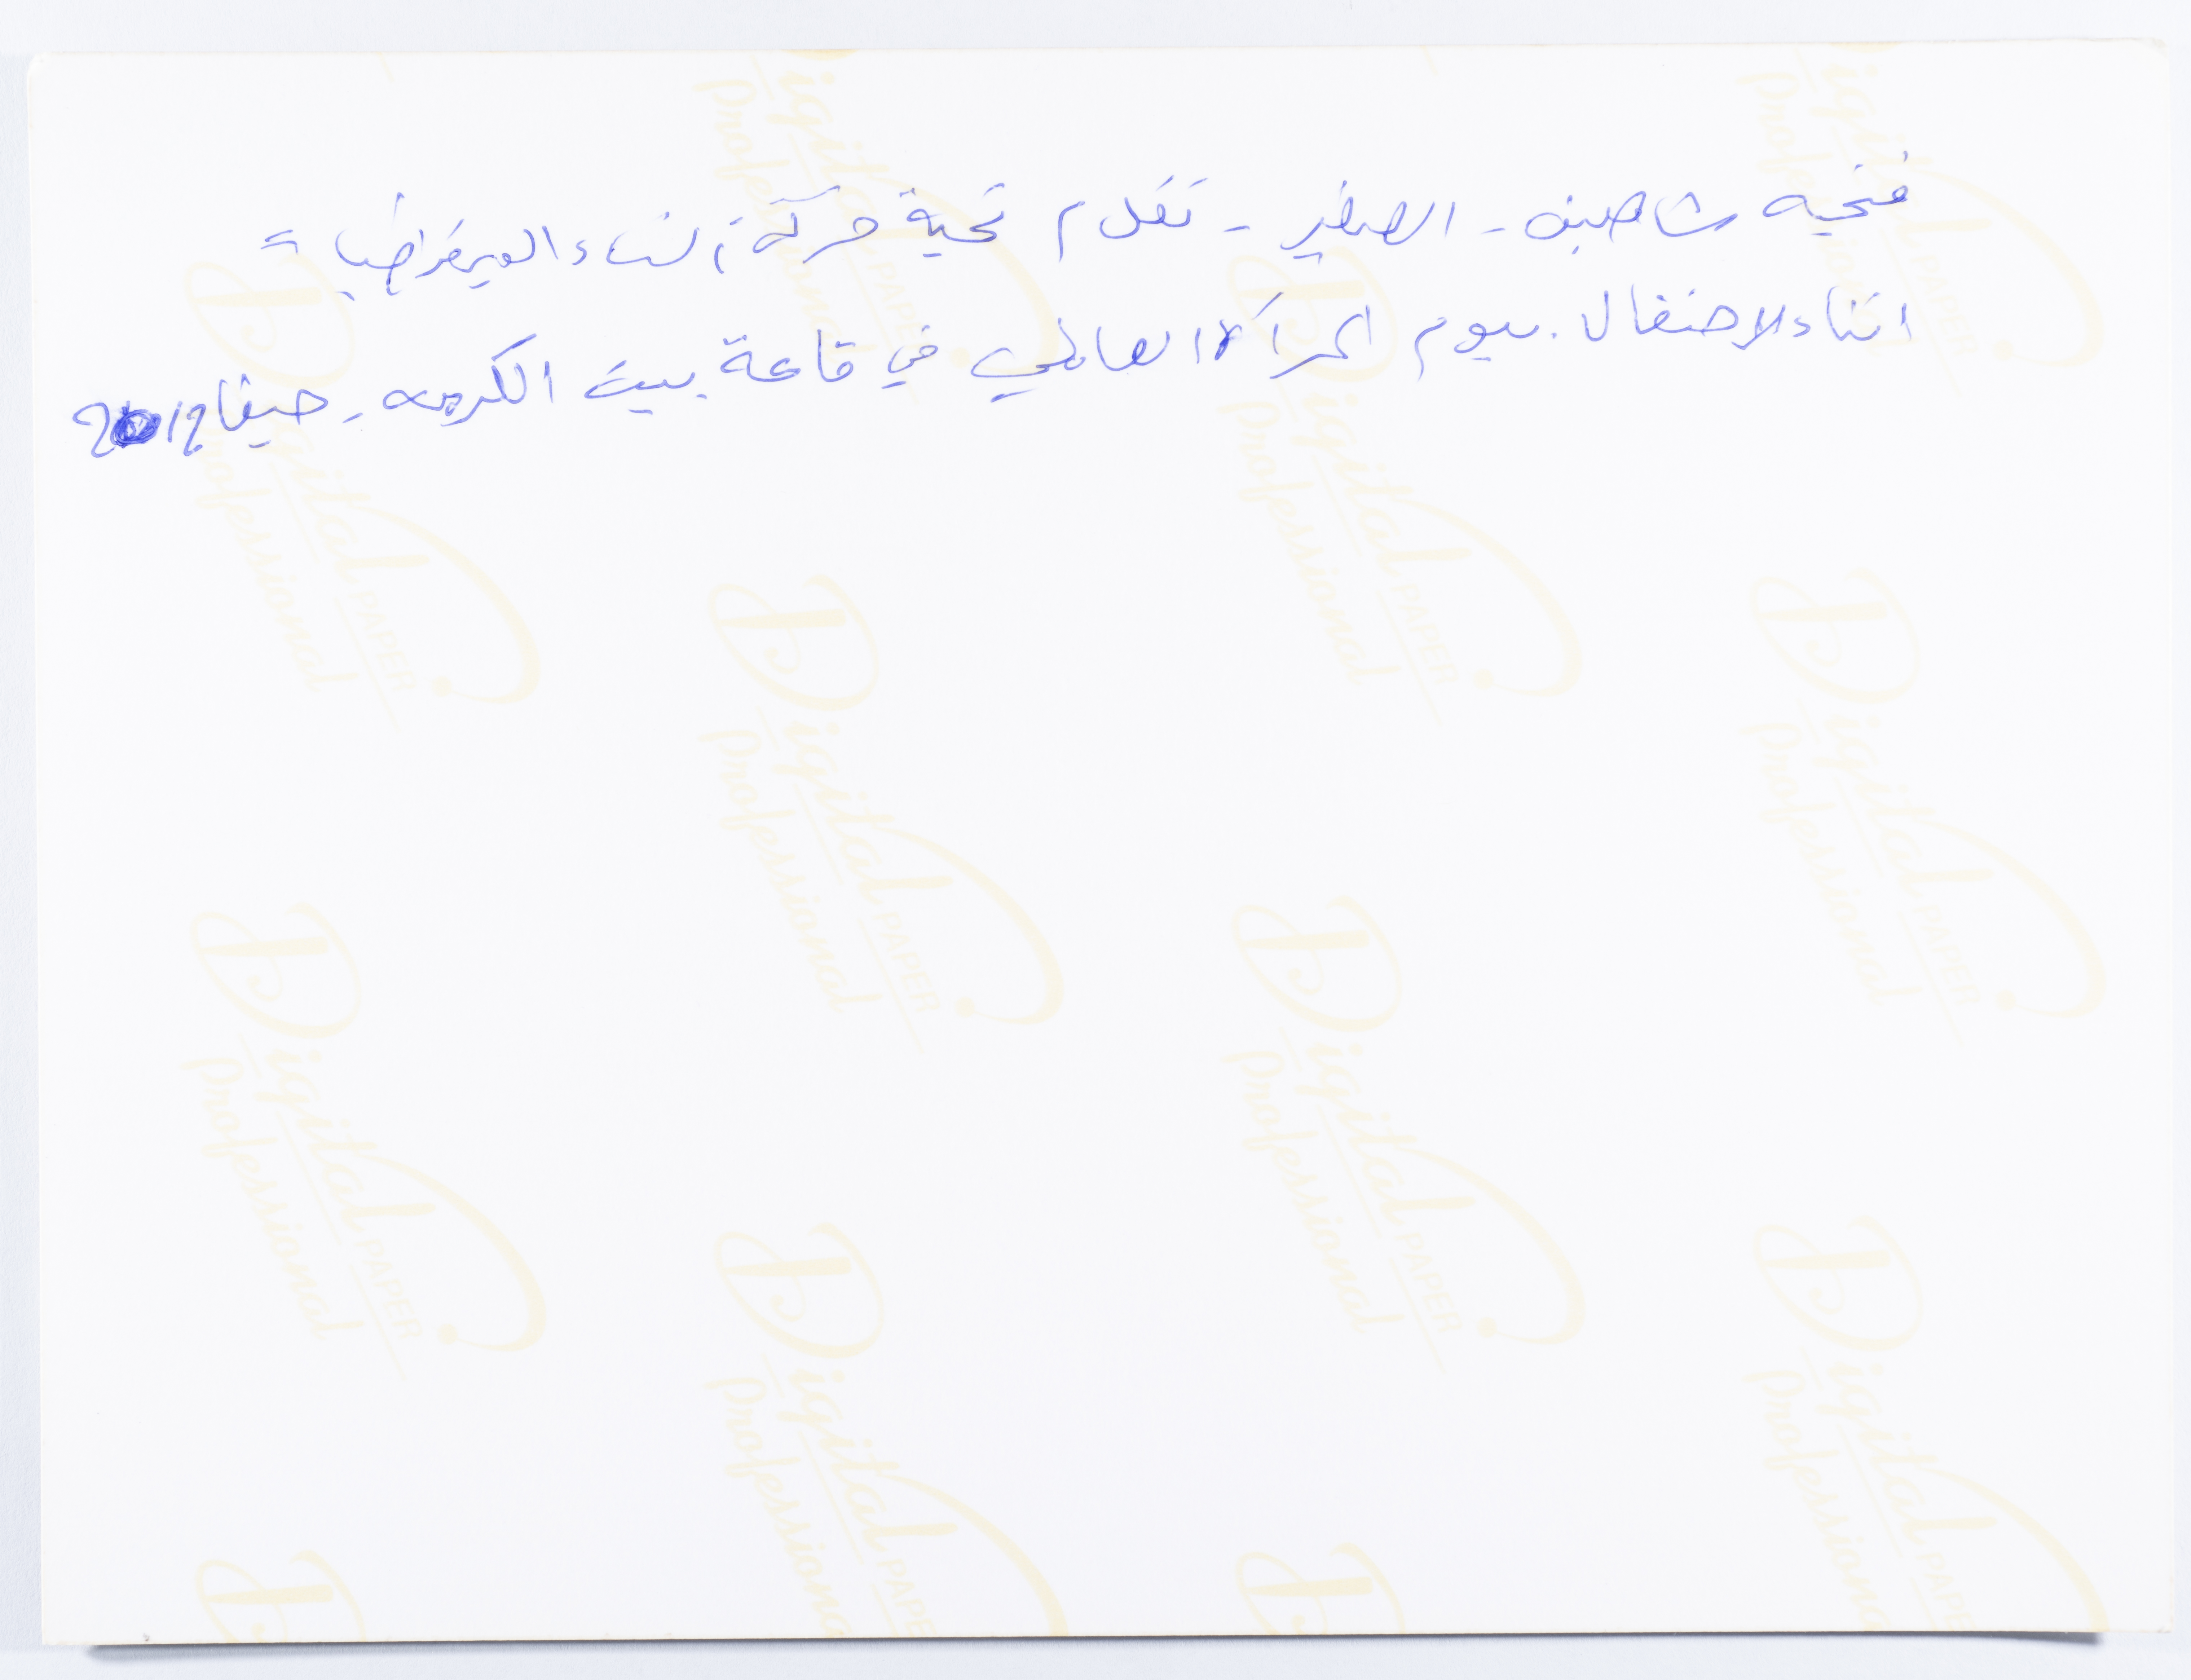 فتحيه شاهين - الصغير - تقدم تحية حركة النساء الديمقراطيات
اثناء الاحتفال بيوم المرأة العالمي في قاعة بيت الكرمه - حيفا 2012
Digital PAPER
Professional